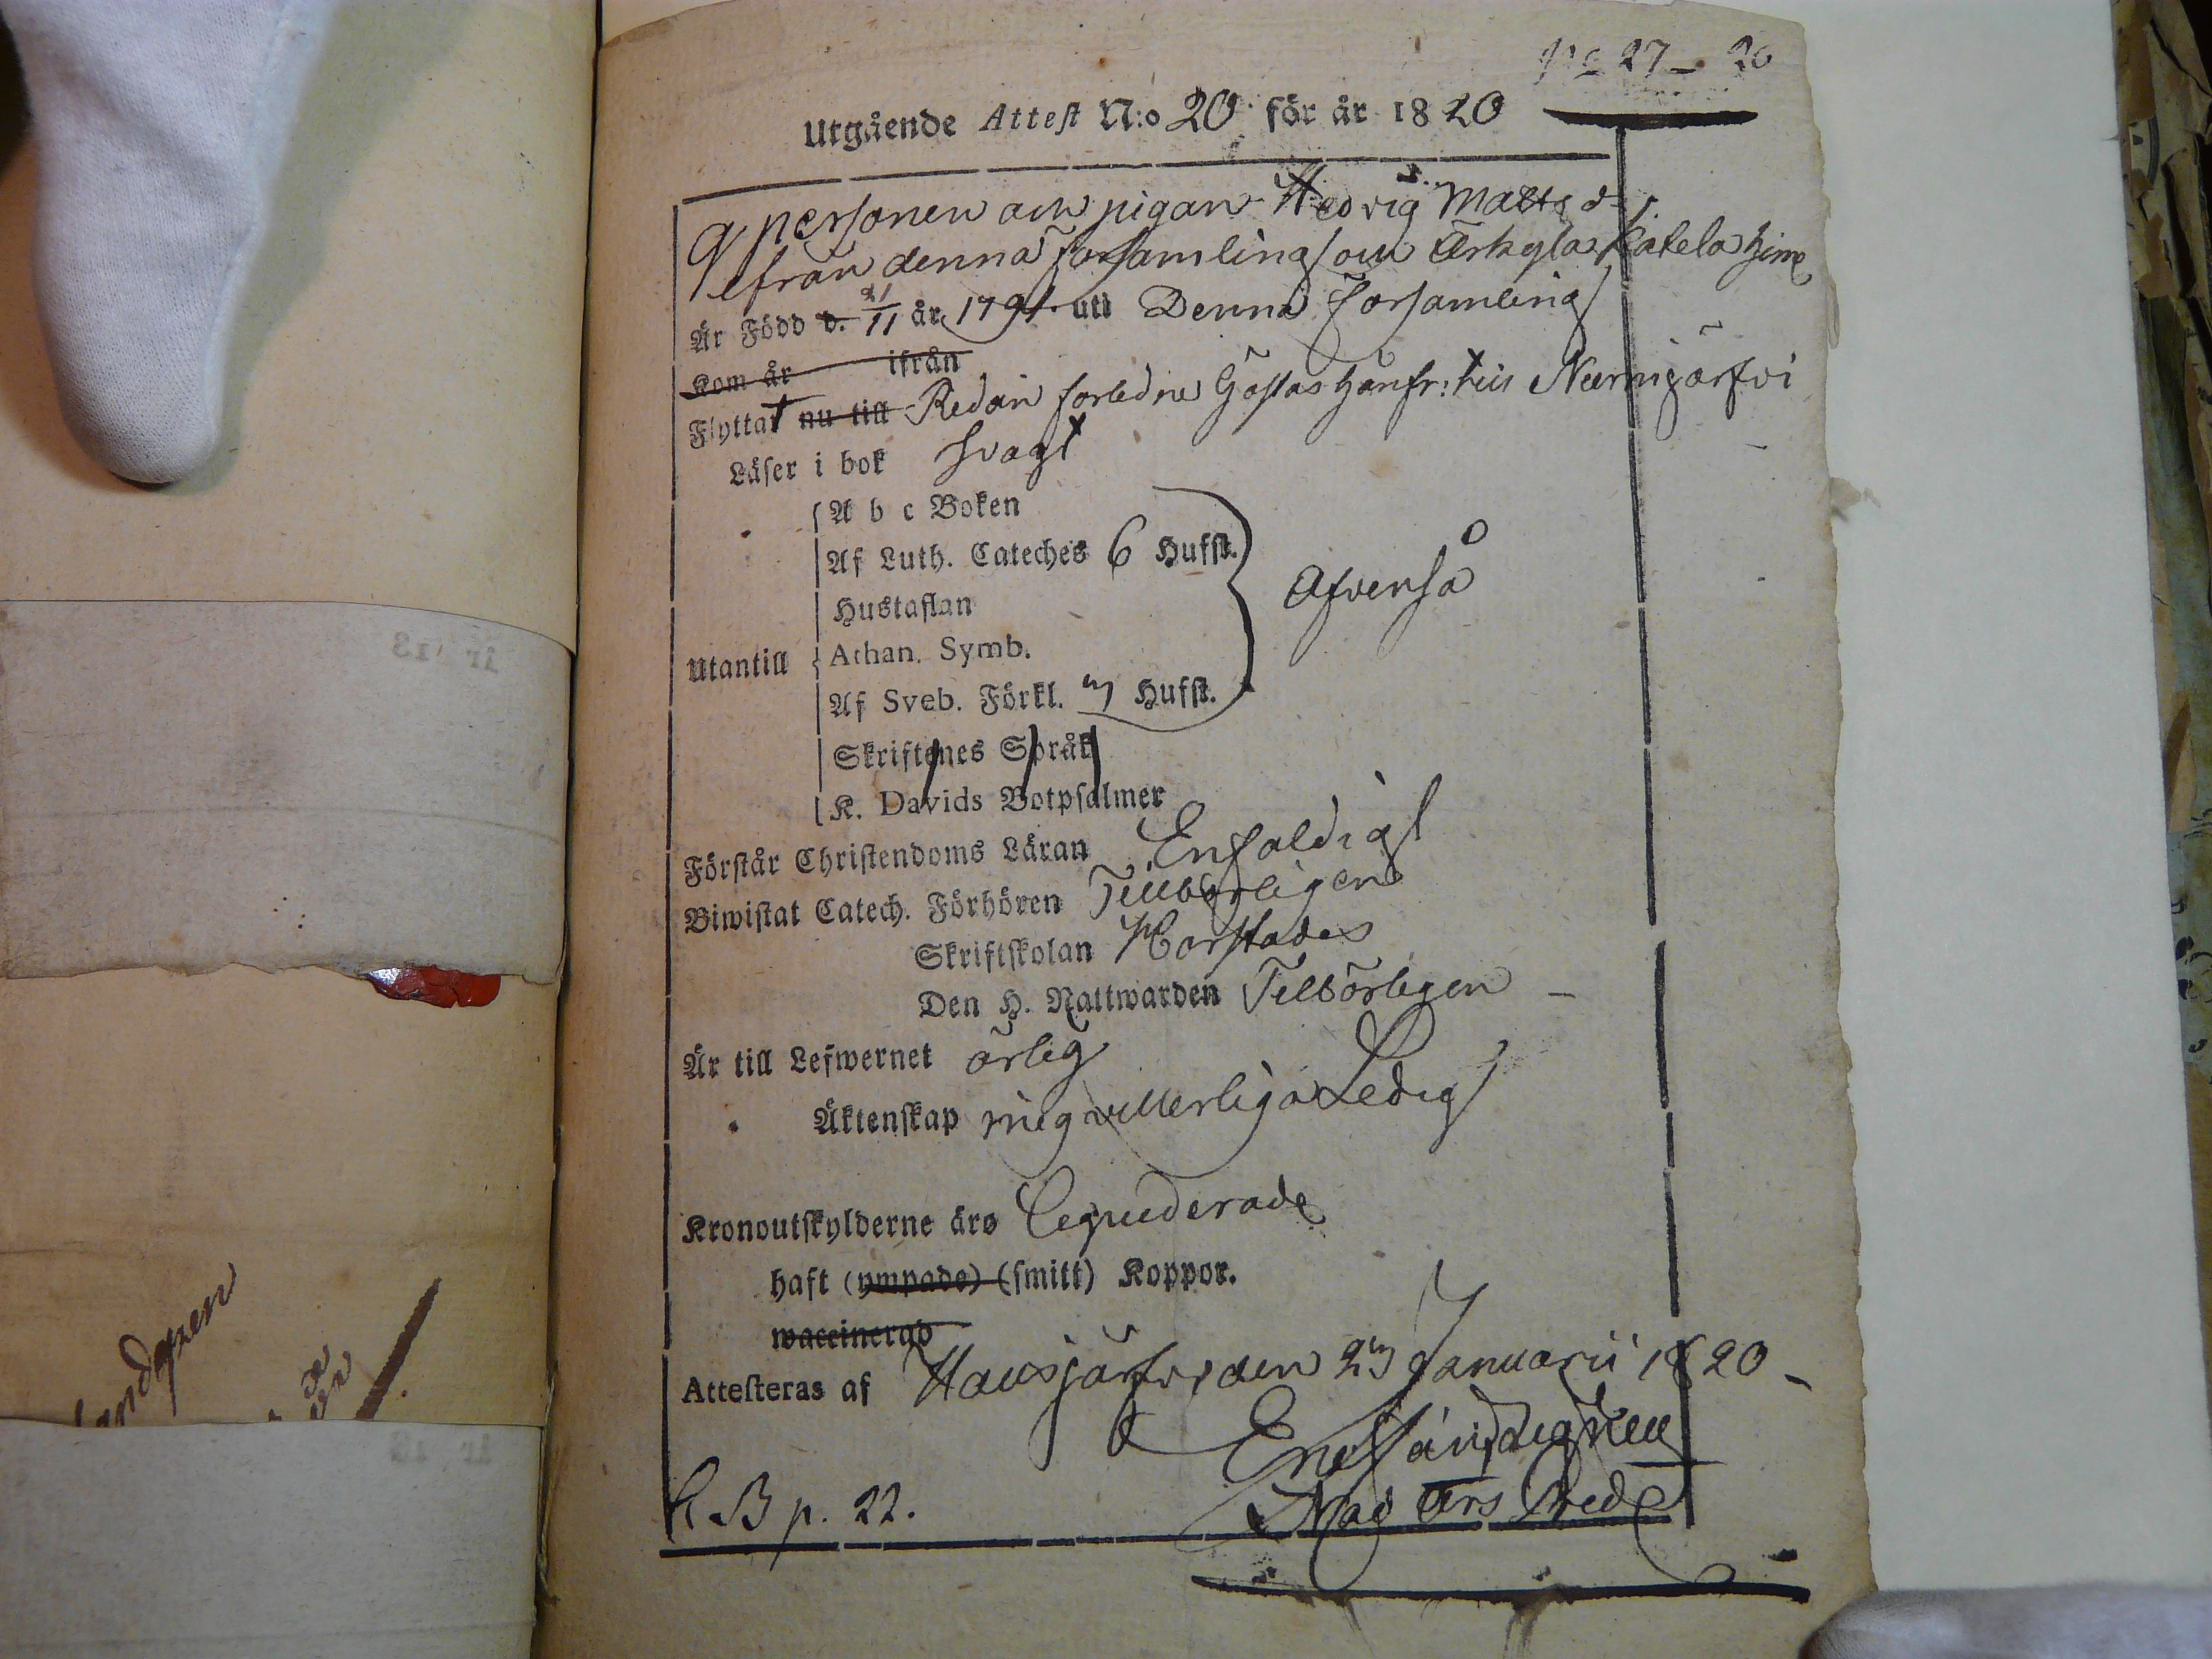 No 27 - 20
Utgående Attest N:o 20 för år 1820
Qpersonen och pigan Hedvig Matts dr
ifrån denna Församling och Erkylä Katela hem
Är Född d. 21/11 år 1791 uti Denna Församling
Kom år ifrån
Flyttat nu till Redan förledne
Läser i bok Svagt
Utantill
A b c Boken
Af Luth. Cateches 6 Hufst.
Hustaflan
Äfvenså
Athan. Symb.
Af Sveb. Förkl. 3 Hufst.
Skriftenes Språk
K. Davids Botpsalmer
Förstår Christendoms Läran Enfaldigt
Biwistat Catech. Förhören Tillbörligen
Skriftskolan
Den H. Nattwarden Tilbörligen -
Är till Lefwernet ärlig
Äktenskap mig vetterliga Ledig
Kronoutskylderne äro Liquiderade
haft (ympade) (smitt) Koppor.
waccinerad
Attesteras af Hausjärfvi den 23 Januarii 1820 -
K B p. 22.
andgren
år 18
år 18